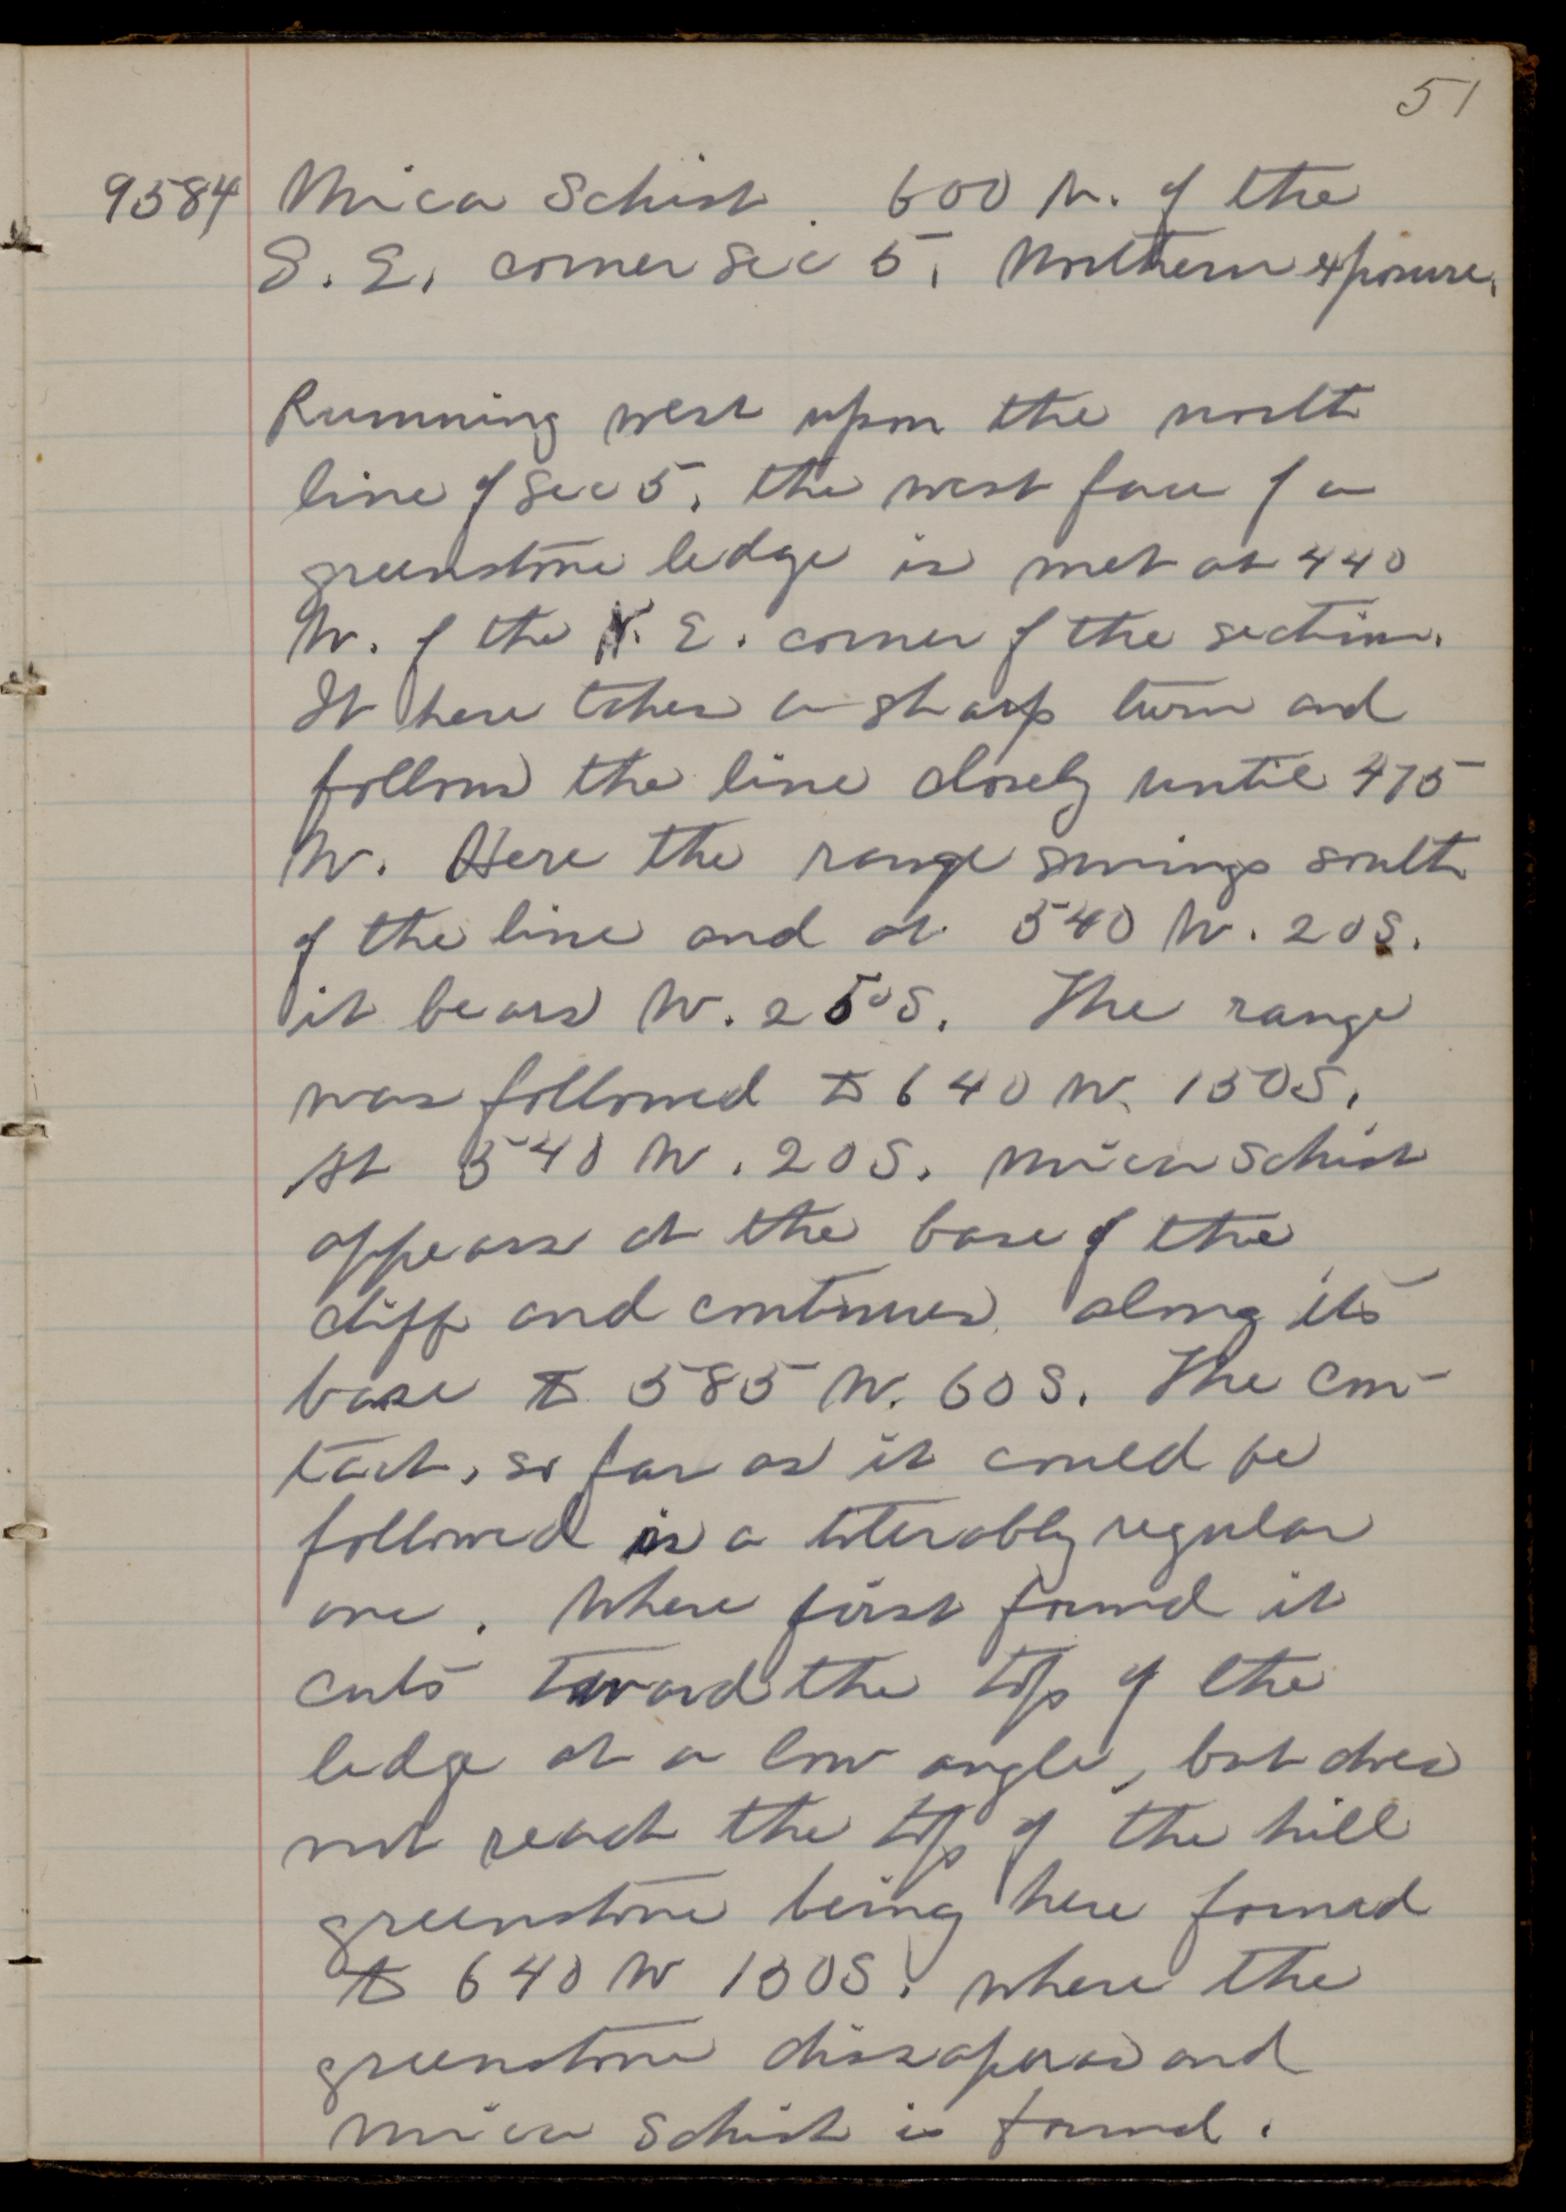 51
9584 Mica Schist. 600 N. of the
S. E. corner Sec 5. Northern exposure.
Running west upon the north
line of Sec 5, the west face of a
greenstone ledge is met at 440
W. of the N. E. corner of the section.
It here takes a sharp turn and
follows the line closely until 475
W. Here the range swings south
of the line and at 540 W. 20 S.
it bears W. 25° S. The range
was followed to 640 W. 150 S.
At 540 W. 20 S. mica schist
appears at the base of the
cliff and continues along its
base to 585 W. 60 S. The con-
tact, so far as it could be
followed is a tolerably regular
one. Where first found it
cuts toward the top of the
ledge at a low angle, but does
not reach the top of the hill
greenstone being here found
to 640 W 150 S. where the
greenstone dissapears and
mica schist is found.